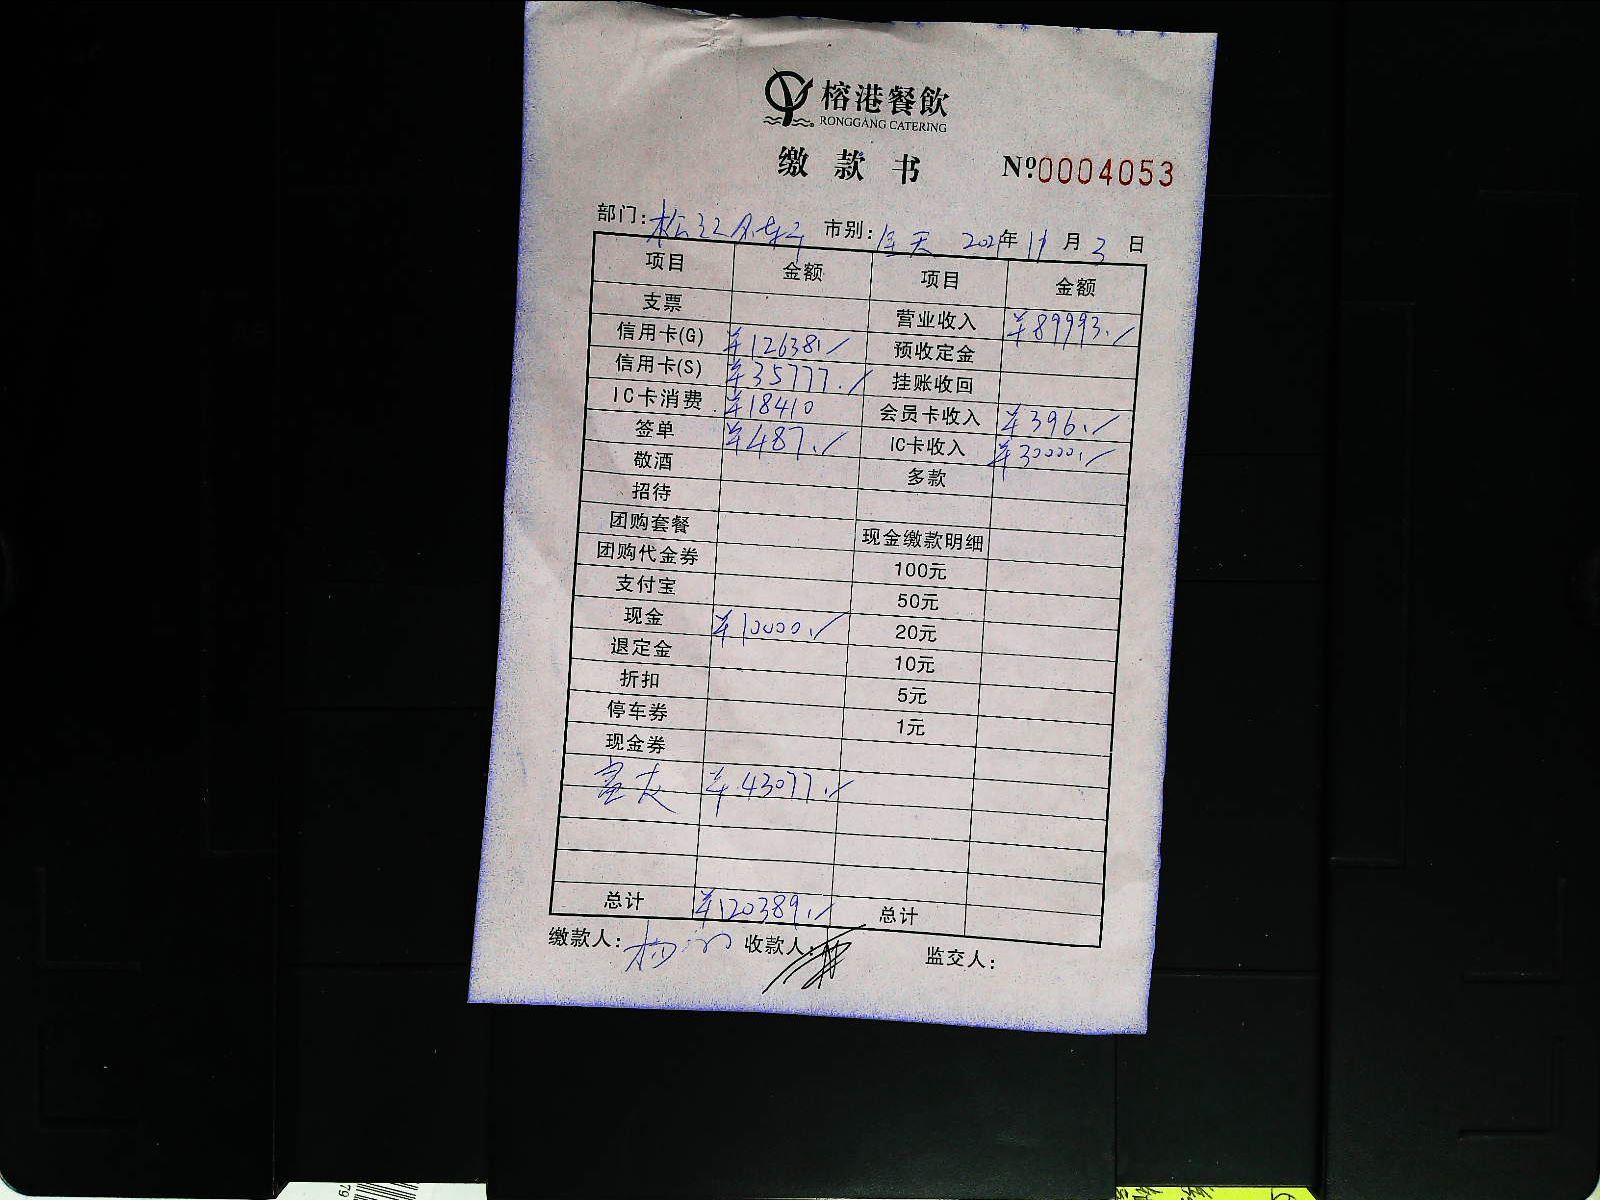 榕港餐飲
RONGGANG CATERING
缴款书 №0004053
部门: 松江 市别: 全天 2021年 11月 3日
项目 金额 项目 金额
支票 营业收入 ¥89993./
信用卡(G) ¥12638./ 预收定金
信用卡(S) ¥35777./ 挂账收回
IC卡消费 ¥18410 会员卡收入 ¥396./
签单 ¥487./ IC卡收入 ¥30000./
敬酒 多款
招待
团购套餐 现金缴款明细
团购代金券 100元
支付宝 50元
现金 ¥10000./ 20元
退定金 10元
折扣 5元
停车券 1元
现金券
富友 ¥43077./
总计 ¥120389./ 总计
缴款人: 杨 收款人: 监交人: